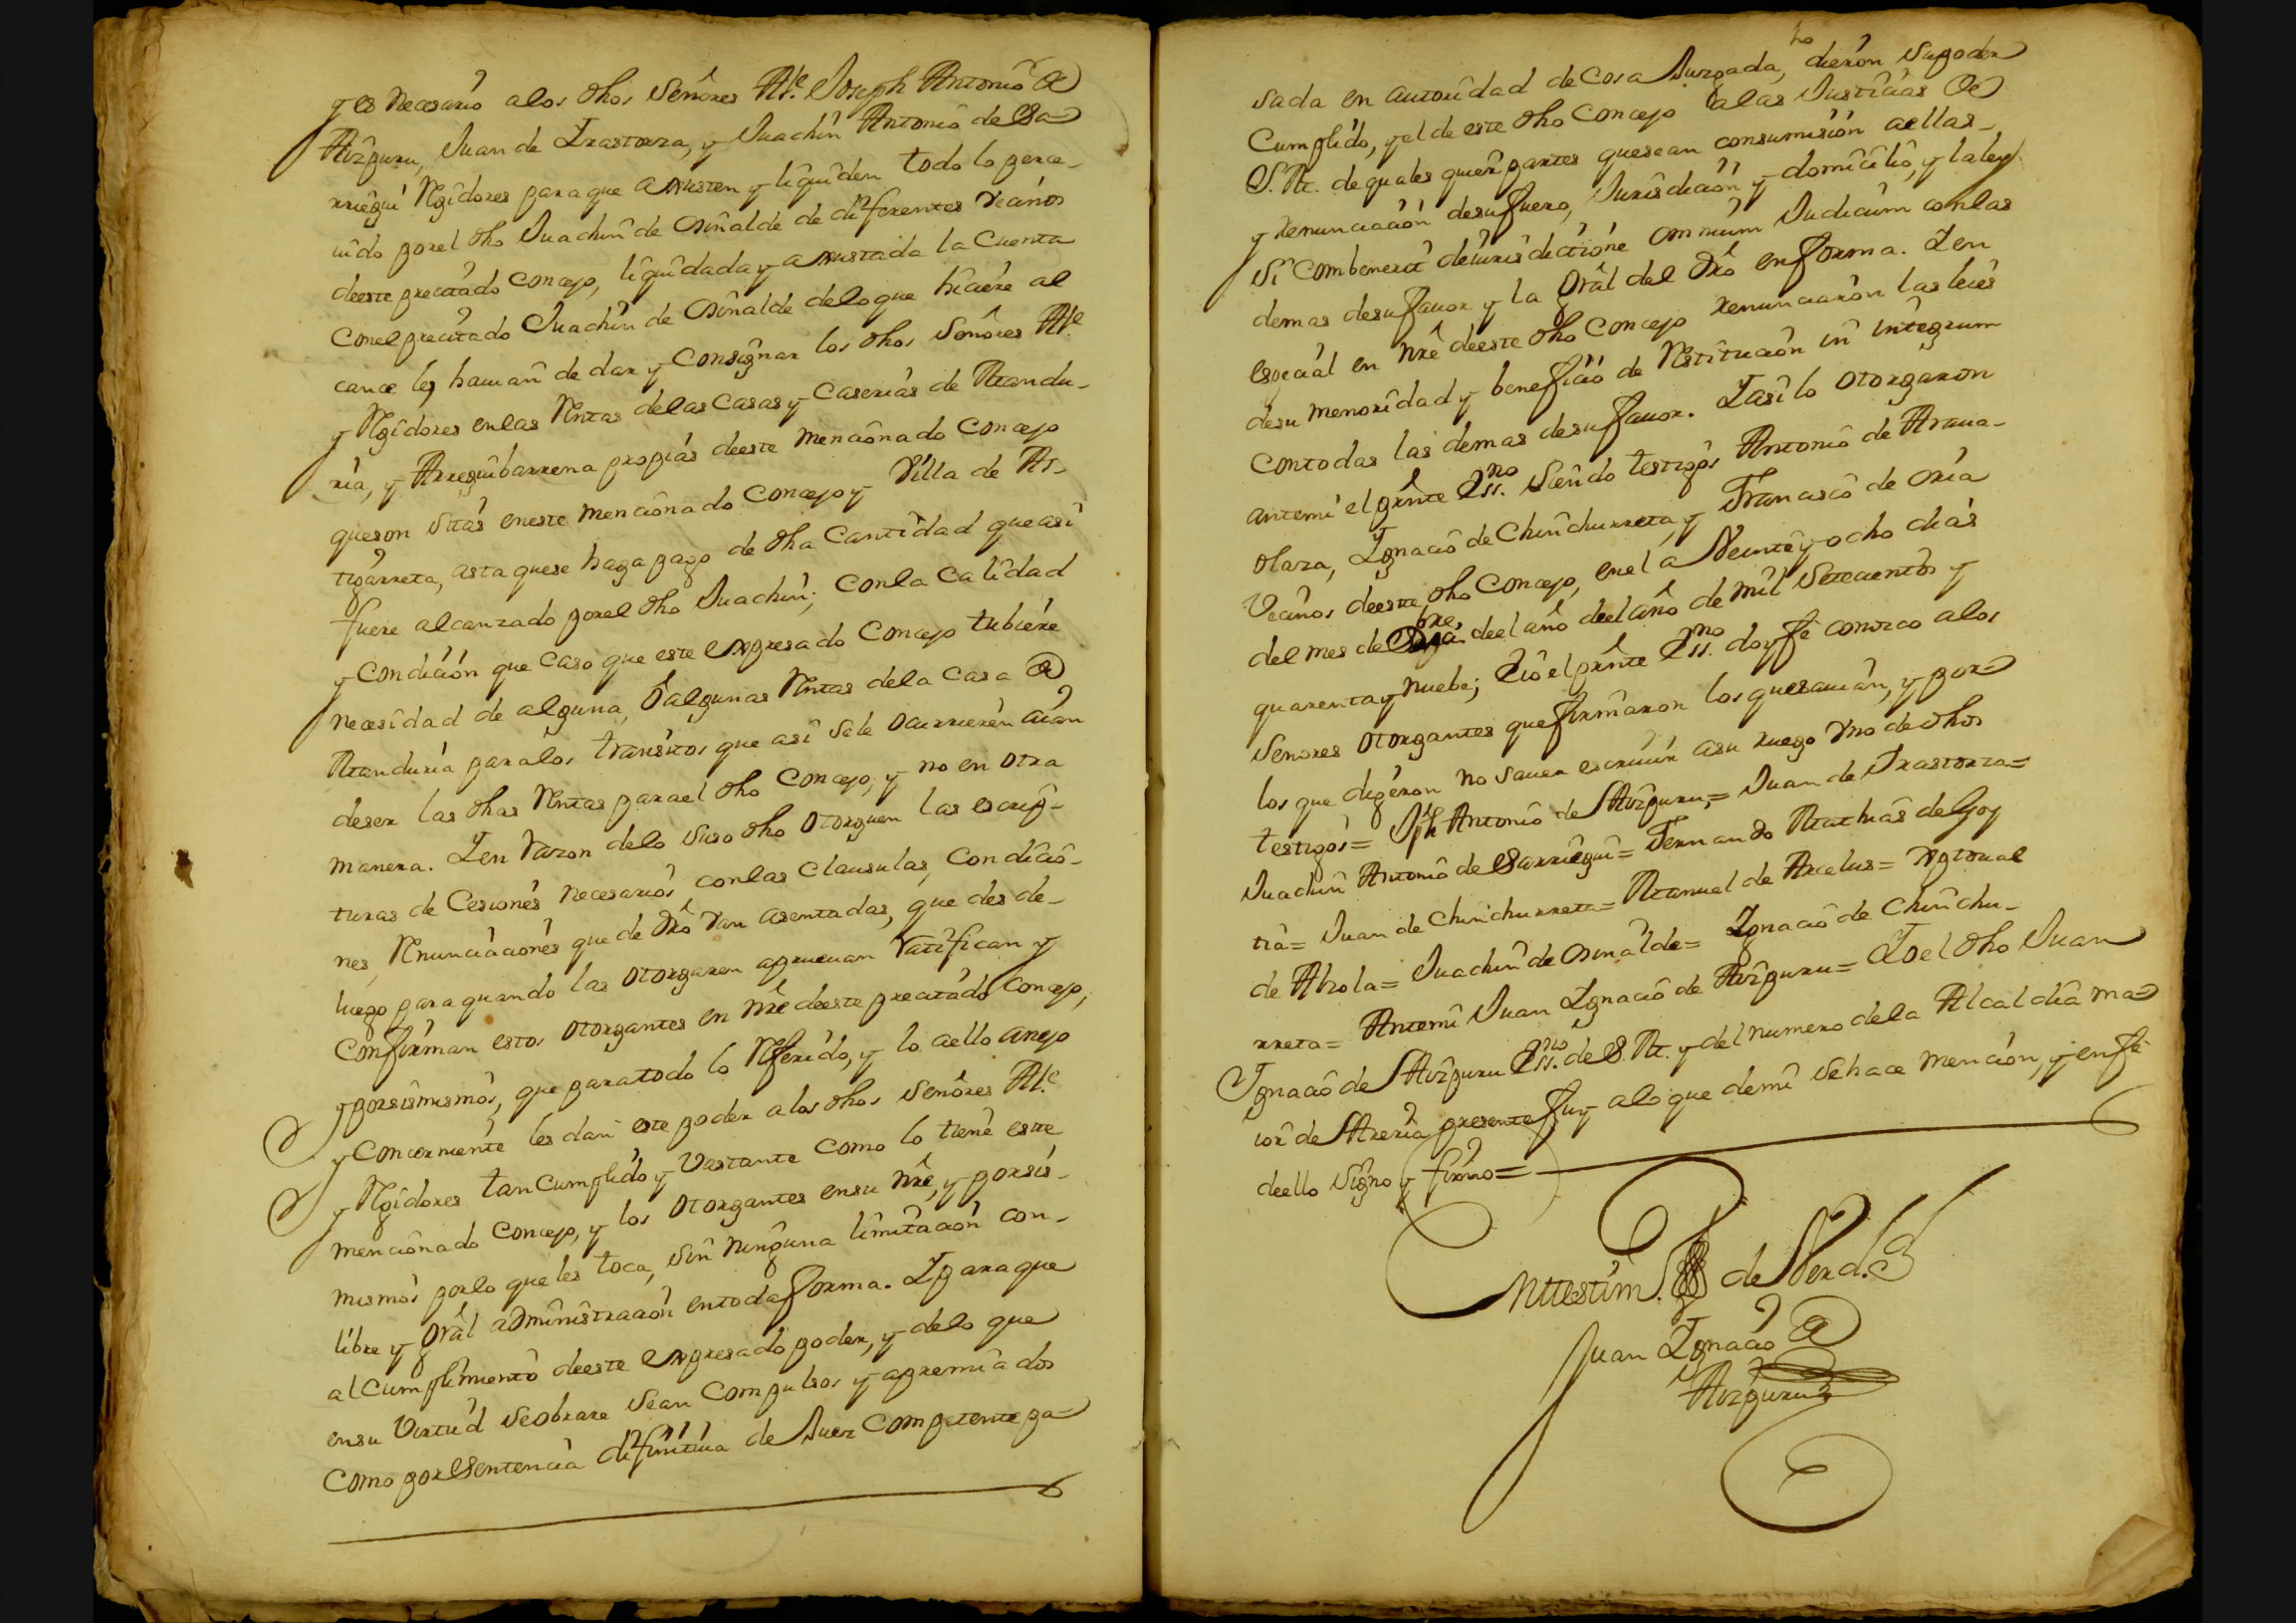 y es necesario a los dhos Señores Alc.e Joseph Antonio de
Aizpuru, Juan de Irastorza, y Juachin Antonio de Sa-
rriegui Regidores para que ajusten y liquiden todo lo perce-
uido por el dho Juachin de Osinalde de diferentes vecinos
de este precitado Concejo, liquidada y ajustada la Cuenta
con el precitado Juachin de Osinalde de lo que hiciere al
cance les hauian de dar y Consignar los dhos Señores Alc.e
y Regidores en las Rentas de las Casas y Caserias de Mandu-
ria, y Arreguibarrena propias de este mencionado Concejo
que son sitas en este mencionado Concejo y Villa de As-
tigarreta, asta que se haga pago de dha Cantidad que asi
fuere alcanzado por el dho Juachin; con la Calidad
y Condicion que caso que este expresado Concejo tubiere
necesidad de alguna, o algunas Rentas de la Casa de
Manduria para los transitos que asi se le ocurrieren aian
de ser las dhas Rentas para el dho Concejo, y no en otra
manera. I en razon de lo suso dho otorguen las escrip-
turas de Cesiones necesarios con las Clausulas, Condicio-
nes, Renunciaciones que de dro van asentadas, que des de-
luego para quando las otorgaren aprueuan ratifican y
Confirman estos otorgantes en nre de este precitado Concejo,
y por si mismos, que para todo lo Referido, y lo a ello anejo
y Concerniente les dan este poder a los dhos Señores Alc.e
y Regidores tan Cumplido y Vastante como lo tiene este
mencionado Concejo, y los otorgantes en su nre, y por sis-
mismos por lo que les toca, sin ninguna limitacion con-
libre y gral administracion en toda forma. I para que
al Cumplimiento de este expresado poder, y de lo que
en su Virtud se obrare sean Compulsos y apremiados
Como por Sentencia difinitiua de Juez Competente pa-
sada en autoridad de Cosa Juzgada, dieron su poder
Cumplido, y el de este dho Concejo a las Justicias de
S. M. de quales quier partes que sean con sumision a ellas-
y renunciacion de su fuero, Jurisdicion y domicilio, y la ley
Si Combenerit de iurisdictione omnium Judicum con las
demas de su fauor y la gral del dro en forma. I en
especial en nre de este dho Concejo renunciaron las leies
de su menoridad y beneficio de Restitucion in integrum
con todas las demas de su fauor. I asi lo otorgaron
ante mi el prnte Ess.no siendo testigos Antonio de Araua-
olaza, Ignacio de Chinchurreta, y Francisco de Oria
Vecinos de este dho Concejo, en el a Veinte y ocho dias
del mes de del año del año de mil setecientos y
quarenta y nuebe; E io el prnte Ess.no doy fe conozco a los
Señores otorgantes que firmaron los que sauian, y por
los que digeron no sauer escriuir a su ruego vno de dhos
testigos= Jph Antonio de Aizpuru,= Juan de Irastorza=
Juachin Antonio de Sarriegui= Fernando Mathias de Goy
tia= Juan de Chinchurreta= Manuel de Arcelus= Xptoual
de Ahola= Juachin de Osinalde= Ignacio de Chinchu-
rreta= Ante mi Juan Ignacio de Aizpuru= Io el dho Juan
Ignacio de Aizpuru Ess.no de S. M. y del numero de la Alcaldia ma-
ior de Areria presente fuy a lo que de mi se hace mencion, y en fe
de ello signo y firmo=
En testim.o de Verd.
Juan Ignacio de
Aizpuru